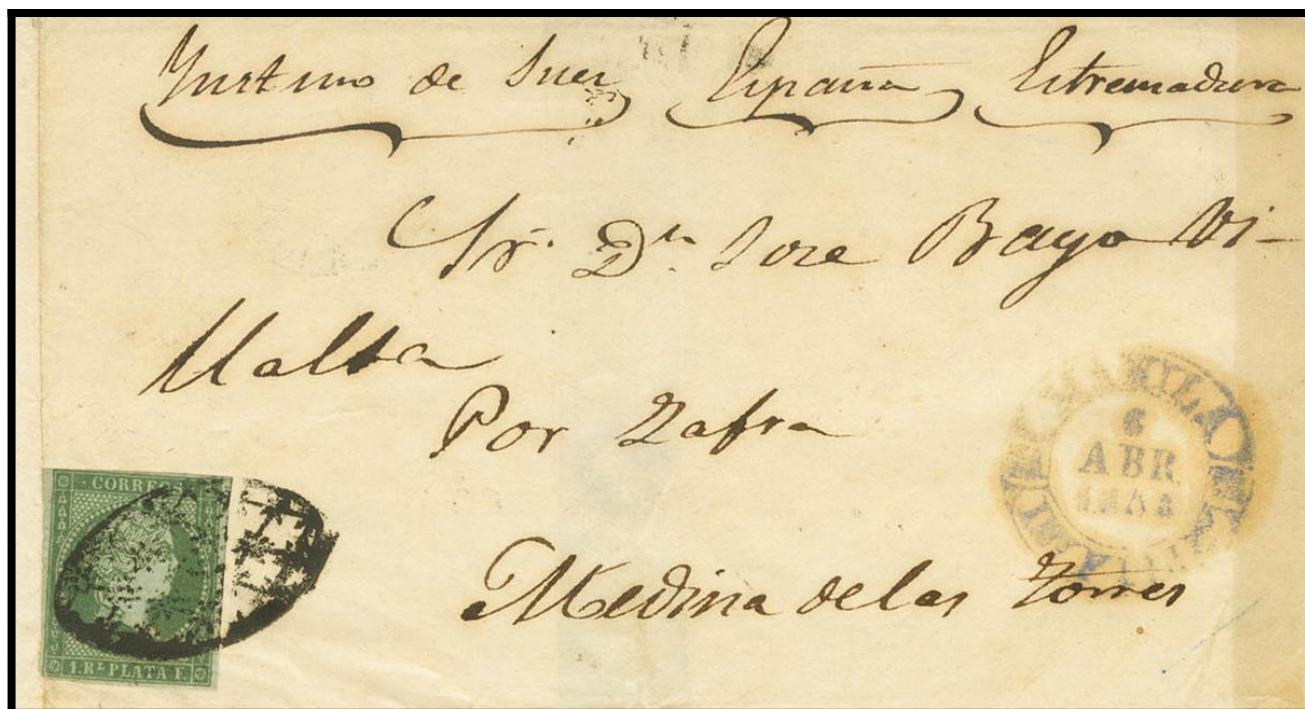 Ystmo de Suez España Estremadura
Sr. Dn. Jose Bayo Vi-
llalta
Por Zafra
Medina de las Torres
MANILA
6
ABR
CORREOS
1. RL PLATA F.